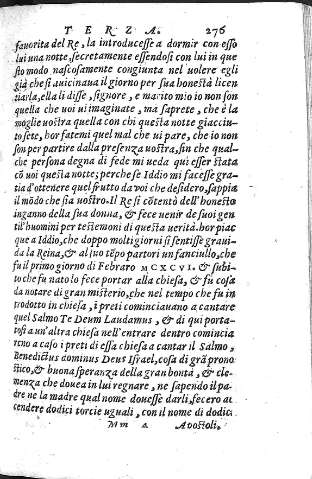 TERZA. 276
fauorita del Re, la introducesse a dormir con esso
lui una notte, secretamente essendosi con lui in que
sto modo nascosamente congiunta nel uolere egli
già che si auicinaua il giorno per sua honestà licen
tiarla, ella li disse, signore, e marito mio io non son
quella che uoi ui imaginate, ma saprete, che è la
moglie uostra quella con chi questa notte giacciu-
to sete, hor fatemi quel mal che ui pare, che io non
son per partire dalla presenza uostra, fin che qual-
che persona degna di fede mi ueda qui esser stata
cō uoi questa notte; perche se Iddio mi facesse gra-
tia d'ottenere quel frutto da uoi che desidero, sappia
il modo che sia uostro. Il Re si cōtentò dell'honesto
inganno della sua donna, & fece uenir de suoi gen
til'huomini per testemoni di questa uerità. hor piac
que a Iddio, che doppo molti giorni si sentisse graui-
da la Reina, & al suo tēpo partorì un fanciullo, che
fu il primo giorno di Febraro MCXCVI. & subi-
to che fu nato lo fece portar alla chiesa, & fu cosa
da notare di gran misterio, che nel tempo che fu in
trodotto in chiesa, i preti cominciauano a cantare
quel Salmo Te Deum Laudamus, & di qui porta-
tosi a un'altra chiesa nell'entrare dentro comincia
rono a caso i preti di essa chiesa a cantar il Salmo,
Benedictus dominus Deus Israel, cosa di grā prono
stico, & buona speranza della gran bontà, & cle-
menza che douea in lui regnare, ne sapendo il pa-
dre ne la madre qual nome douesse darli, fecero ac
cendere dodici torcie uguali, con il nome di dodici
Mm 4 Apostoli,